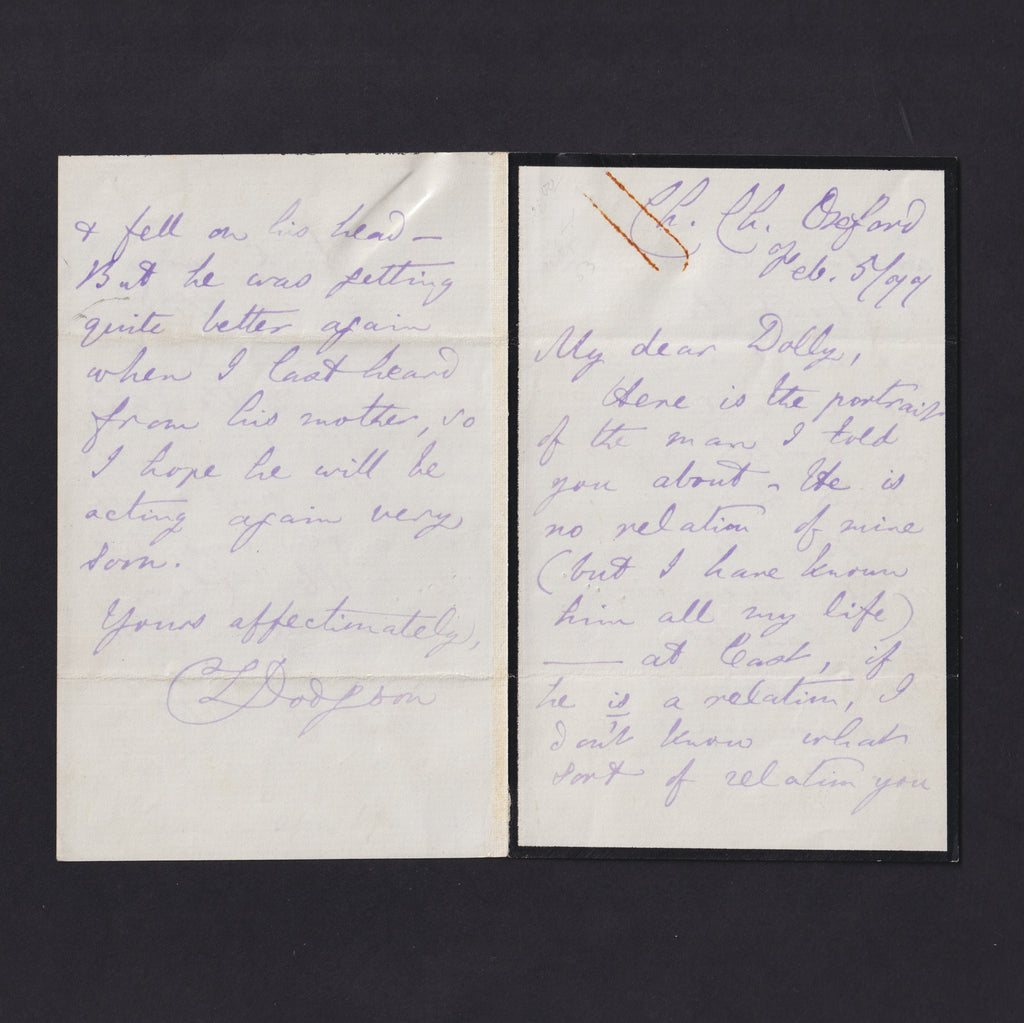 Ch. Ch. Oxford
Feb. 5/77
My dear Dolly,
Here is the portrait
of the man I told
you about - He is
no relation of mine
(but I have known
him all my life)
—— at least, if
he is a relation, I
don't know what
sort of relation you
& fell on his head —
But he was getting
quite better again
when I last heard
from his mother, so
I hope he will be
acting again very
soon.
Yours affectionately,
CLDodgson